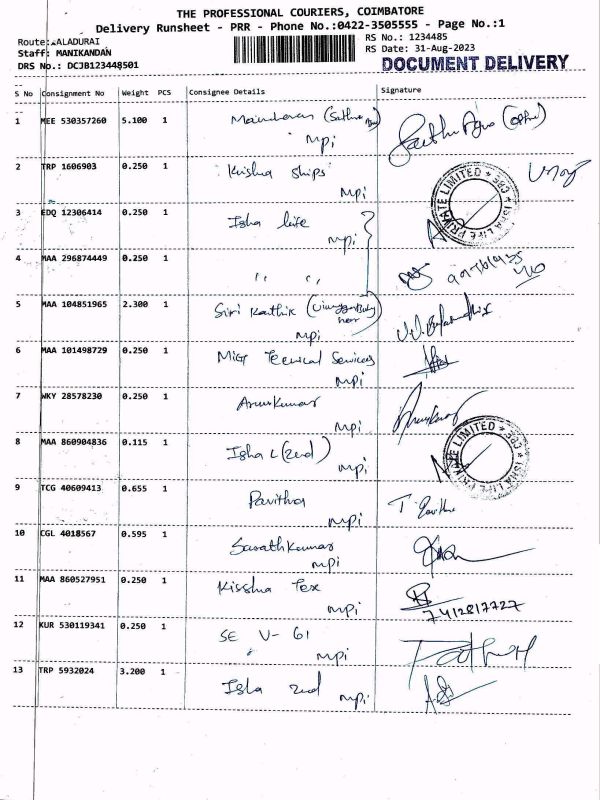 THE PROFESSIONAL COURIERS, COIMBATORE
Delivery Runsheet - PRR - Phone No.:0422-3505555 - Page No.:1
Route: ALADURAI
Staff: MANIKANDAN
DRS No.: DCJB123448501
RS No.: 1234485
RS Date: 31-Aug-2023
DOCUMENT DELIVERY
S No Consignment No Weight PCS Consignee Details Signature
1 MEE 530357260 5.100 1
mpi
2 TRP 1606903 0.250 1 Krishna ships
mpi
3 EDQ 12306414 0.250 1 Isha life
mpi
4 MAA 296874449 0.250 1 " "
5 MAA 104851965 2.300 1 Siri Karthik
mpi
6 MAA 101498729 0.250 1 MIGT Tecnical Services
mpi
7 WKY 28578230 0.250 1 Arunkumar
mpi
8 MAA 860904836 0.115 1 Isha L (2nd)
mpi
9 TCG 40609413 0.655 1 Pavithra
mpi
10 CGL 4018567 0.595 1 Sarathkumar
mpi
11 MAA 860527951 0.250 1 Kisshna Tex
mpi 7412817727
12 KUR 530119341 0.250 1 SE V-61
mpi
13 TRP 5932024 3.200 1 Isha 2nd
mpi
ISHA LIFE PRIVATE LIMITED * CBE *
ISHA LIFE PRIVATE LIMITED * CBE *